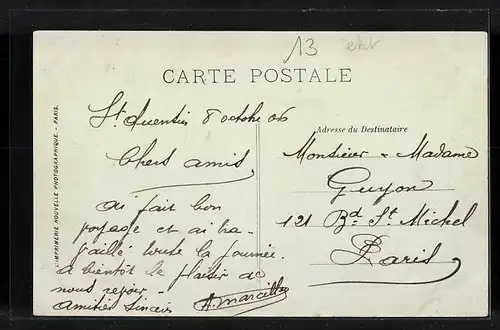 13
CARTE POSTALE
L'IMPRIMERIE NOUVELLE PHOTOGRAPHIQUE. - PARIS.
St Quentin 8 octobre 06
Chers amis
ai fait bon
voyage et ai tra-
vaillé toute la journée.
à bientôt le plaisir de
nous revoir -
amitiés sincères
A. Marcilly
Adresse du Destinataire
Monsieur & Madame
Guyon
121 Bd St Michel
Paris